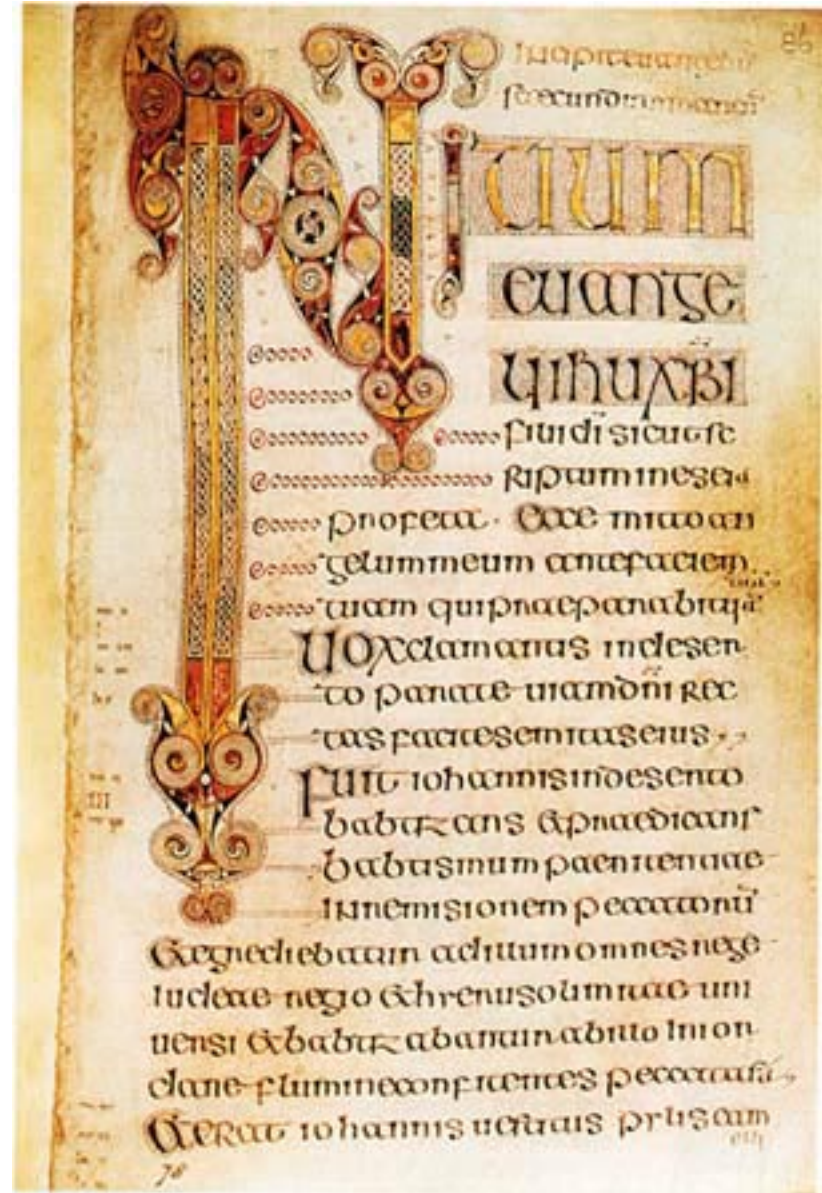 86
Incipit euangeliū
secundum marcū
INitium
euange
lii ihu xpi
filii dī sicut sc
riptum in eseia
profeta · Ecce mitto an
gelum meum ante faciem
tuam qui praeparabit uiā
Uox clamantis in deser
to parate uiam dn̄i rec
tas facite semitas eius
Fuit iohannis in deserto
babtizans & praedicans
babtismum paenitentiae
in remisionem peccatorū
& egrediebatur ad illum omnes rege
iudeae regio & hierusolimitae uni
uersi & babtizabantur ab illo in ior
dane flumine confitentes peccata sua
& erat iohannis uestitus pylis cam
III
76